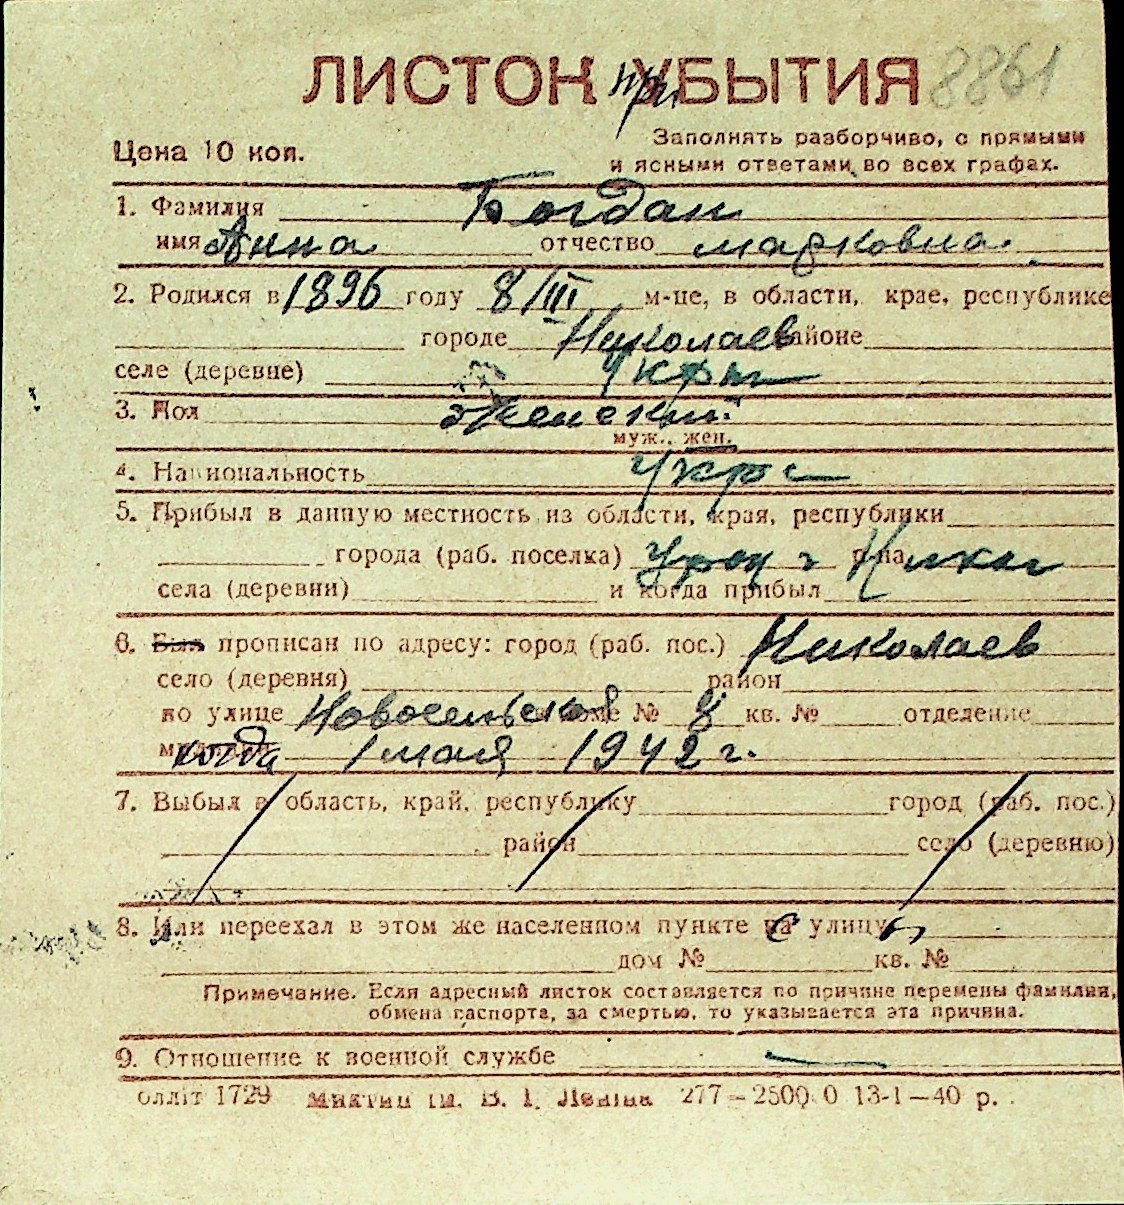 ЛИСТОК при УБЫТИЯ 8861
Цена 10 коп.
Заполнять разборчиво, с прямыми
и ясными ответами во всех графах.
1. Фамилия Богдан
имя Анна отчество марковна.
2. Родился в 1896 году 8/III м-це, в области, крае, республике
городе Николаев районе
селе (деревне) Укры
3. Пол Женский
муж., жен.
4. Национальность Укра
5. Прибыл в данную местность из области, края, республики
города (раб. поселка) р-на
села (деревни) и когда прибыл
6. Был прописан по адресу: город (раб. пос.) Николаев
село (деревня) район
по улице Новосельская доме № 8 кв. № отделение
когда 1 мая 1942 г.
7. Выбыл в область, край, республику город (раб. пос.)
район село (деревню)
8. Или переехал в этом же населенном пункте на улицу
дом № кв. №
Примечание. Если адресный листок составляется по причине перемены фамилии,
обмена паспорта, за смертью, то указывается эта причина.
9. Отношение к военной службе
олліт 1729 ім. В. І. Леніна 277—2500.0 13-1—40 р.